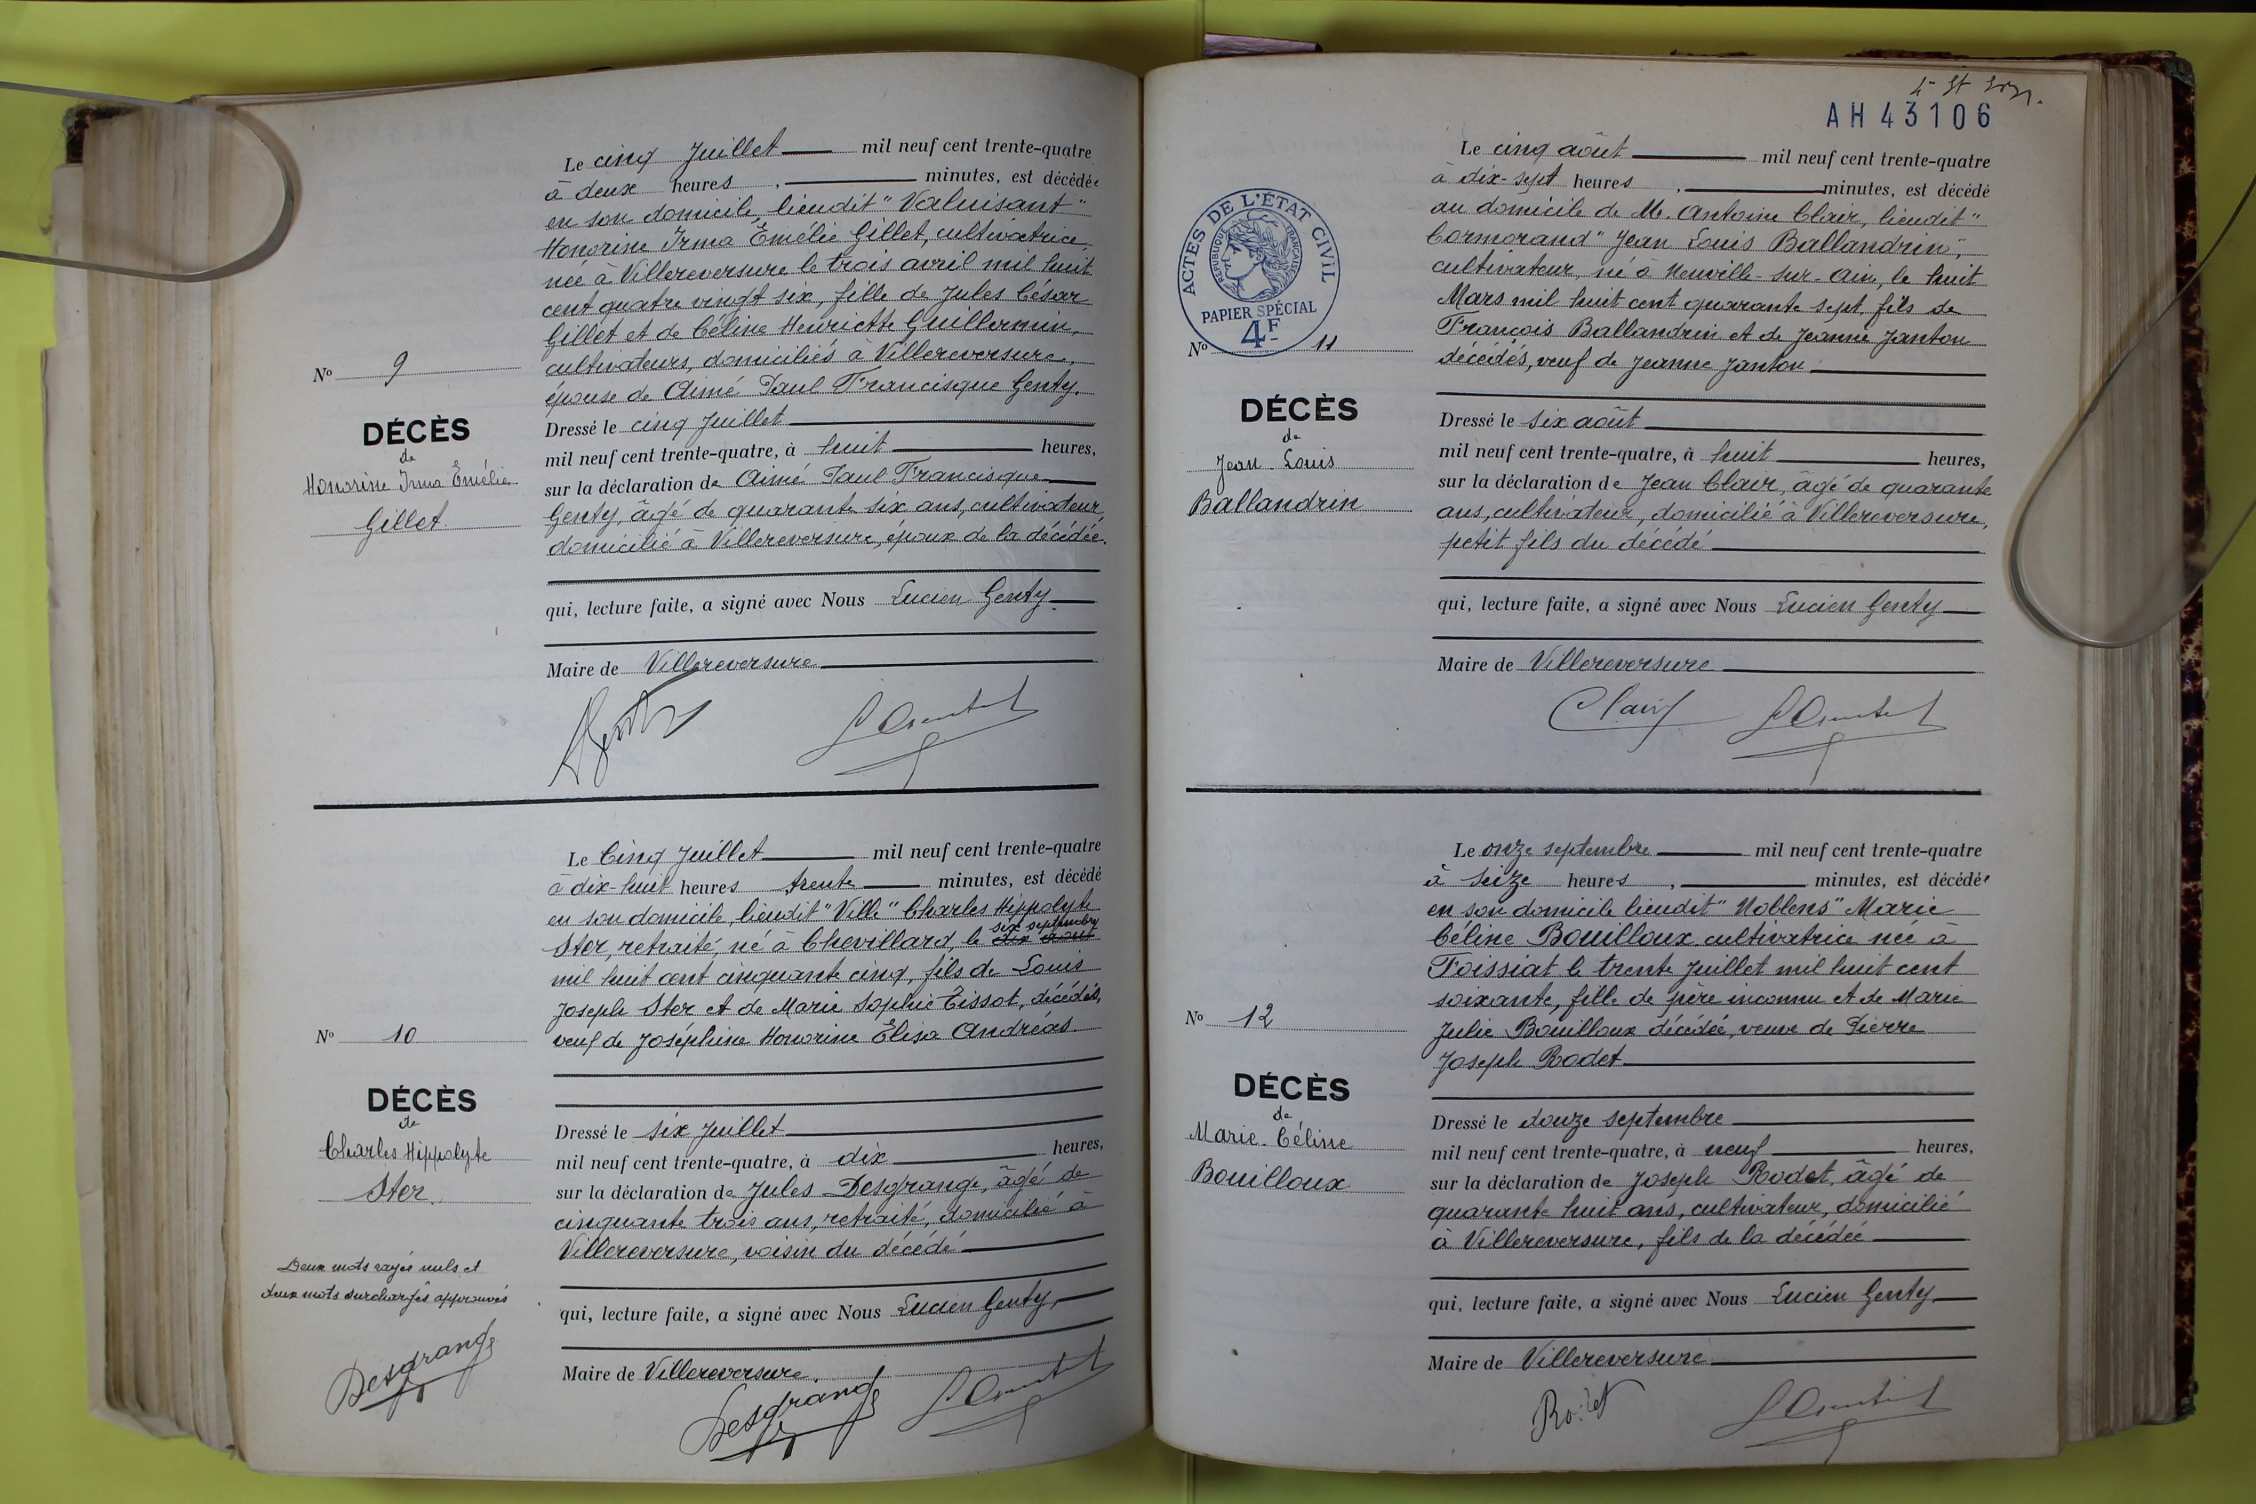 Le cinq Juillet mil neuf cent trente-quatre
à deux heures , minutes, est décédée
en son domicile, lieudit "Valuisant"
Honorine Irma Emélie Gillet, cultivatrice,
née à Villereversure le trois avril mil huit
cent quatre vingt six, fille de Jules César
Gillet et de Céline Henriette Guillermin,
cultivateurs, domiciliés à Villereversure,
épouse de Aimé Paul Francisque Genty.
No 9
DÉCÈS
de
Honorine Irma Emélie
Gillet
Dressé le cinq Juillet
mil neuf cent trente-quatre, à huit heures,
sur la déclaration de Aimé Paul Francisque
Genty, âgé de quarante six ans, cultivateur,
domicilié à Villereversure, époux de la décédée.
qui, lecture faite, a signé avec Nous Lucien Genty
Maire de Villereversure
Le Cinq Juillet mil neuf cent trente-quatre
à dix-huit heures trente minutes, est décédé
en son domicile, lieudit "Ville" Charles Hippolyte
six septembre
Ster, retraité, né à Chevillard, le dix août
mil huit cent cinquante cinq, fils de Louis
Joseph Ster et de Marie Sophie Tissot, décédés,
veuf de Joséphine Honorine Elisa Andréas
No 10
DÉCÈS
de
Charles Hippolyte
Ster
Deux mots rayés nuls et
deux mots surchargés approuvés
Desgrange
Dressé le six Juillet
mil neuf cent trente-quatre, à dix heures,
sur la déclaration de Jules Desgrange, âgé de
cinquante trois ans, retraité, domicilié à
Villereversure, voisin du décédé
qui, lecture faite, a signé avec Nous Lucien Genty,
Maire de Villereversure.
Desgrange
AH 43106
ACTES DE L'ÉTAT CIVIL
RÉPUBLIQUE FRANÇAISE
PAPIER SPÉCIAL
4F
Le cinq août mil neuf cent trente-quatre
à dix-sept heures , minutes, est décédé
au domicile de M. Antoine Clair, lieudit "
Cormorand" Jean Louis Ballandrin,
cultivateur, né à Neuville-sur-Ain, le huit
Mars mil huit cent quarante sept, fils de
François Ballandrin et de Jeanne Janton
décédés, veuf de Jeanne Janton
No 11
DÉCÈS
de
Jean-Louis
Ballandrin
Dressé le six août
mil neuf cent trente-quatre, à huit heures,
sur la déclaration de Jean Clair, âgé de quarante
ans, cultivateur, domicilié à Villereversure,
petit fils du décédé
qui, lecture faite, a signé avec Nous Lucien Genty
Maire de Villereversure
Clair
Le onze septembre mil neuf cent trente-quatre
à seize heures , minutes, est décédée
en son domicile lieudit "Noblens" Marie
Céline Bouilloux cultivatrice née à
Foissiat le trente Juillet mil huit cent
soixante, fille de père inconnu et de Marie
Julie Bouilloux décédée, veuve de Pierre
Joseph Rodet
No 12
DÉCÈS
de
Marie-Céline
Bouilloux
Dressé le douze septembre
mil neuf cent trente-quatre, à neuf heures,
sur la déclaration de Joseph Rodet, âgé de
quarante huit ans, cultivateur, domicilié
à Villereversure, fils de la décédée
qui, lecture faite, a signé avec Nous Lucien Genty
Maire de Villereversure
Rodet